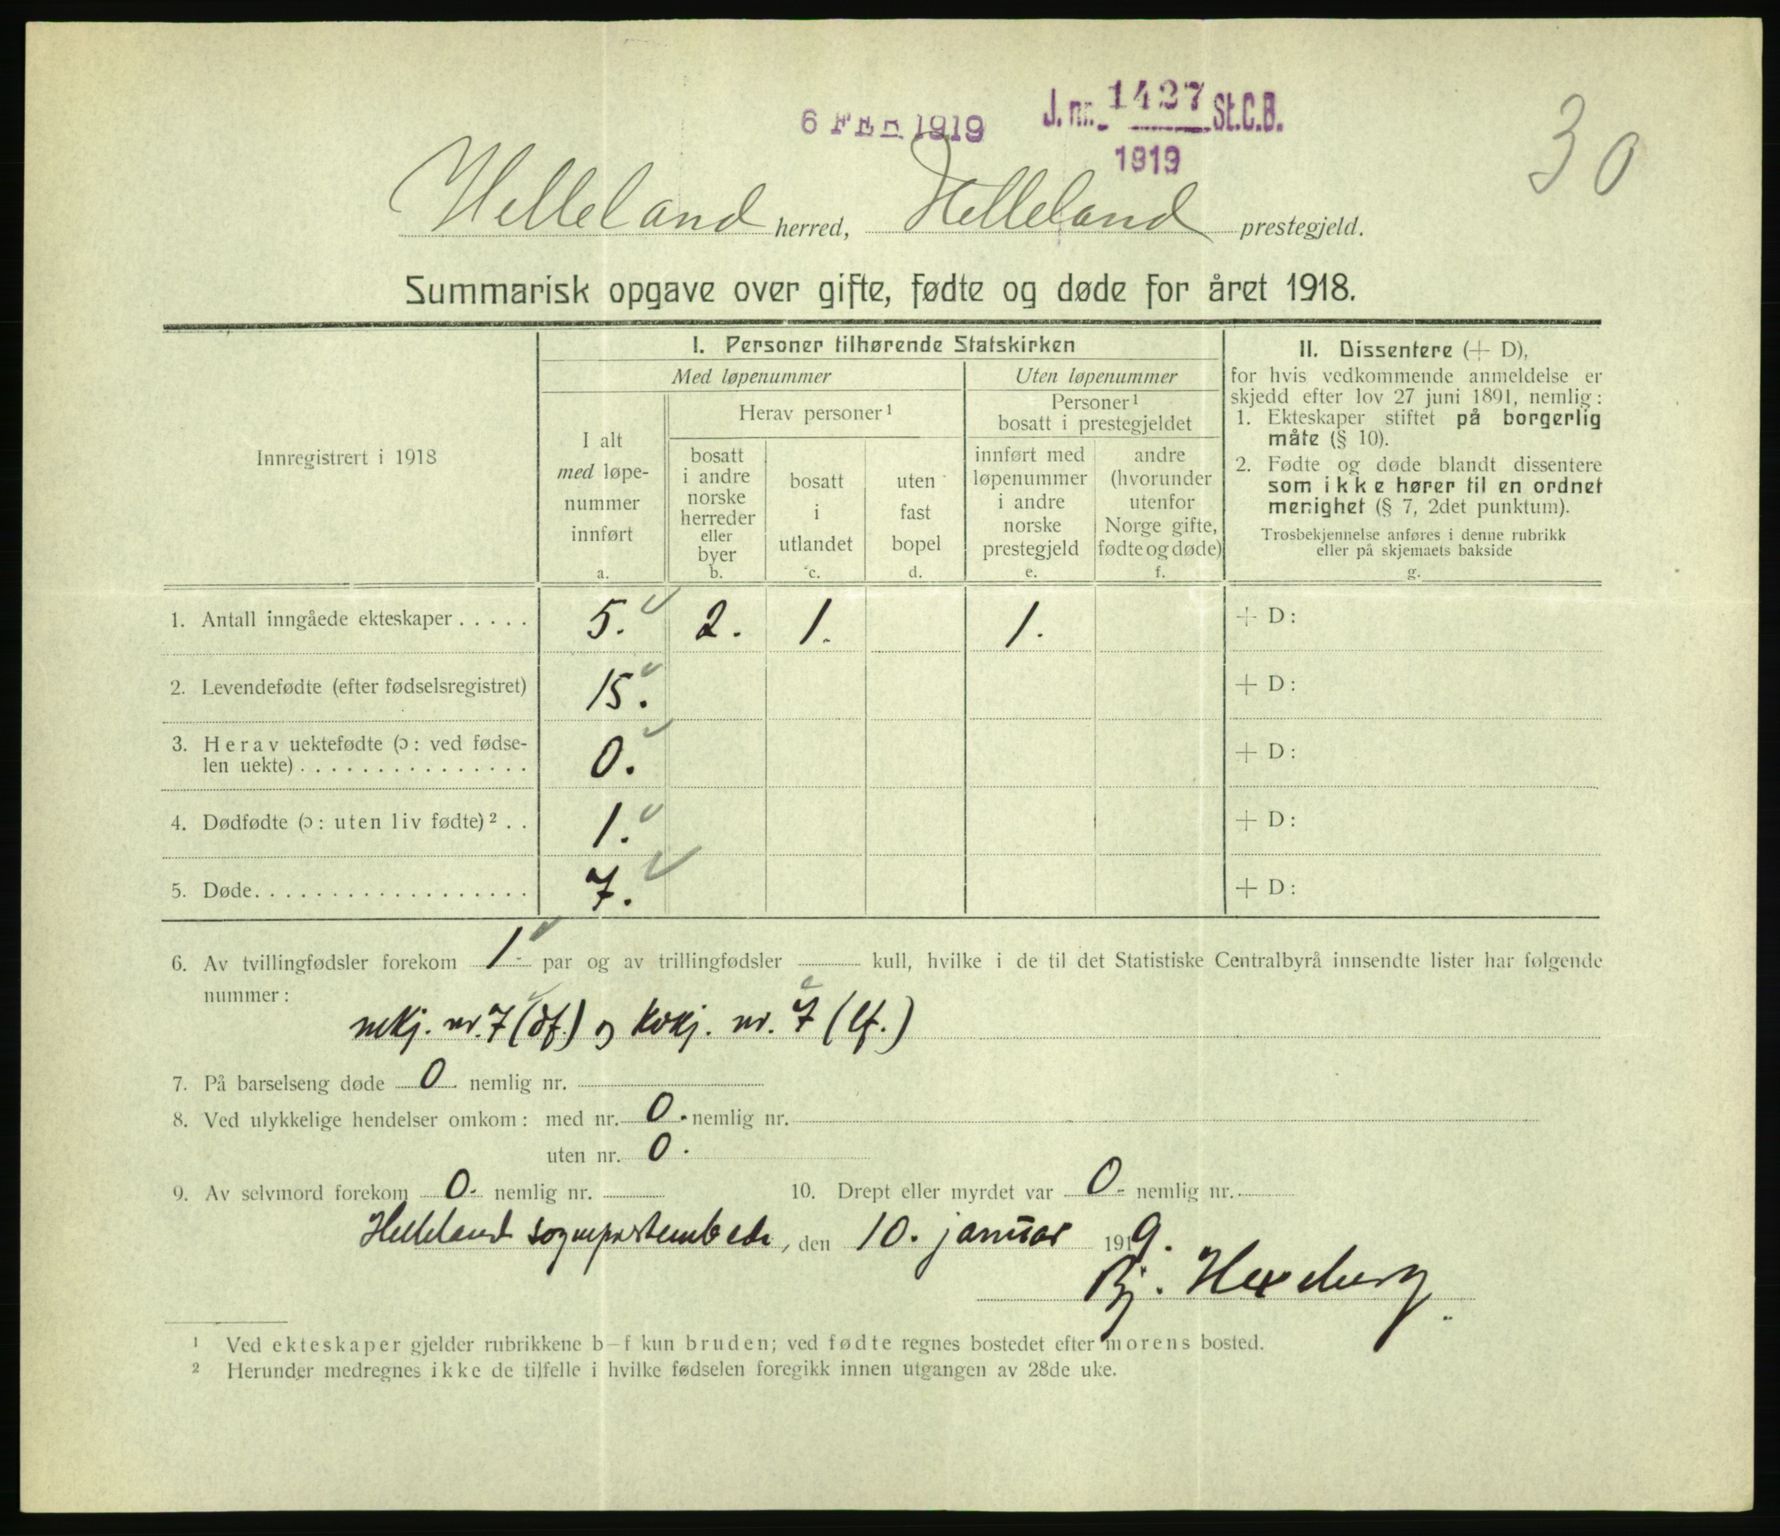 6 FEB 1919
J. nr. 1427 St.C.B.
1919
30
Helleland herred, Helleland prestegjeld.
Summarisk opgave over gifte, fødte og døde for året 1918.
Innregistrert i 1918
I. Personer tilhørende Statskirken
Med løpenummer
Uten løpenummer
I alt med løpenummer innført
a.
Herav personer¹
bosatt i andre norske herreder eller byer
b.
bosatt i utlandet
c.
uten fast bopel
d.
Personer¹ bosatt i prestegjeldet
innført med løpenummer i andre norske prestegjeld
e.
andre (hvorunder utenfor Norge gifte, fødte og døde)
f.
II. Dissentere (+ D),
for hvis vedkommende anmeldelse er
skjedd efter lov 27 juni 1891, nemlig:
1. Ekteskaper stiftet på borgerlig
måte (§ 10).
2. Fødte og døde blandt dissentere
som ikke hører til en ordnet
menighet (§ 7, 2det punktum).
Trosbekjennelse anføres i denne rubrikk
eller på skjemaets bakside
g.
1. Antall inngåede ekteskaper . . . . . 5. 2. 1. 1. + D:
2. Levendefødte (efter fødselsregistret) 15. + D:
3. Herav uektefødte (ɔ: ved fødse-
len uekte) . . . . . . . . . . . . . . . 0. + D:
4. Dødfødte (ɔ: uten liv fødte)² . . 1. + D:
5. Døde. . . . . . . . . . . . . . . . . . 7. + D:
6. Av tvillingfødsler forekom 1. par og av trillingfødsler kull, hvilke i de til det Statistiske Centralbyrå innsendte lister har følgende
nummer:
mkj. nr. 7 (df.) og kvkj. nr. 7 (lf.)
7. På barselseng døde 0 nemlig nr.
8. Ved ulykkelige hendelser omkom: med nr. 0. nemlig nr.
uten nr. 0.
9. Av selvmord forekom 0. nemlig nr. 10. Drept eller myrdet var 0. nemlig nr.
Helleland sogneprestembede, den 10. januar 1919.
Bj. Hexeberg.
¹ Ved ekteskaper gjelder rubrikkene b–f kun bruden; ved fødte regnes bostedet efter morens bosted.
² Herunder medregnes ikke de tilfelle i hvilke fødselen foregikk innen utgangen av 28de uke.